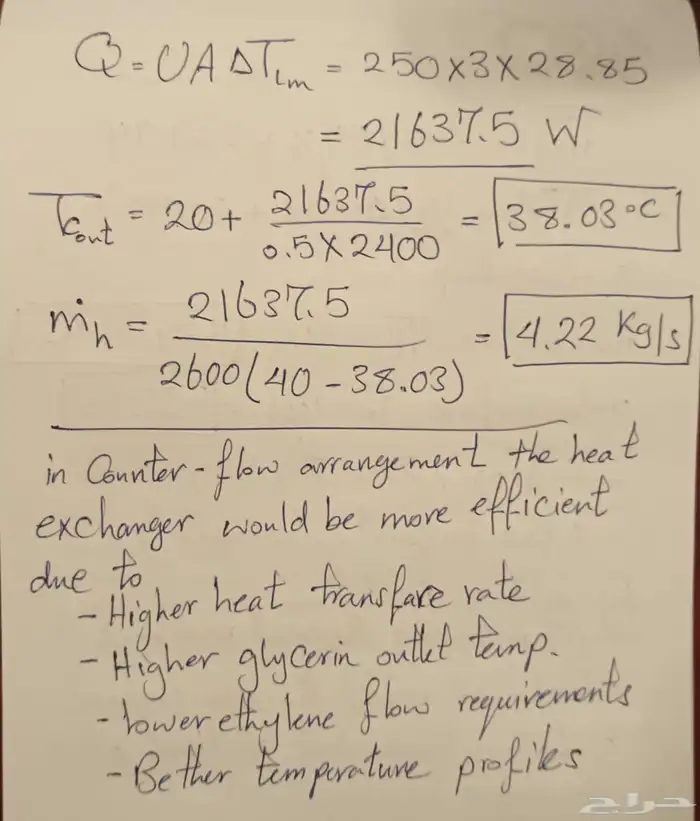 Q = UAΔT_lm = 250×3×28.85
= 21637.5 W
T_c_out = 20 + 21637.5 / 0.5×2400 = 38.03 °C
ṁ_h = 21637.5 / 2600(40 - 38.03) = 4.22 Kg/s
in Counter-flow arrangement the heat
exchanger would be more efficient
due to
- Higher heat transfare rate
- Higher glycerin outlet temp.
- lower ethylene flow requirements
- Bether temperature profiles
حراج